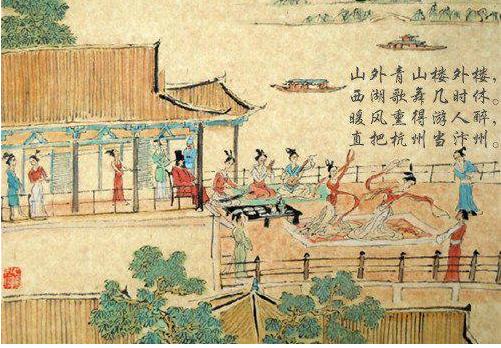 山外青山楼外楼。
西湖歌舞几时休
暖风熏得游人醉，
直把杭州当汴州。